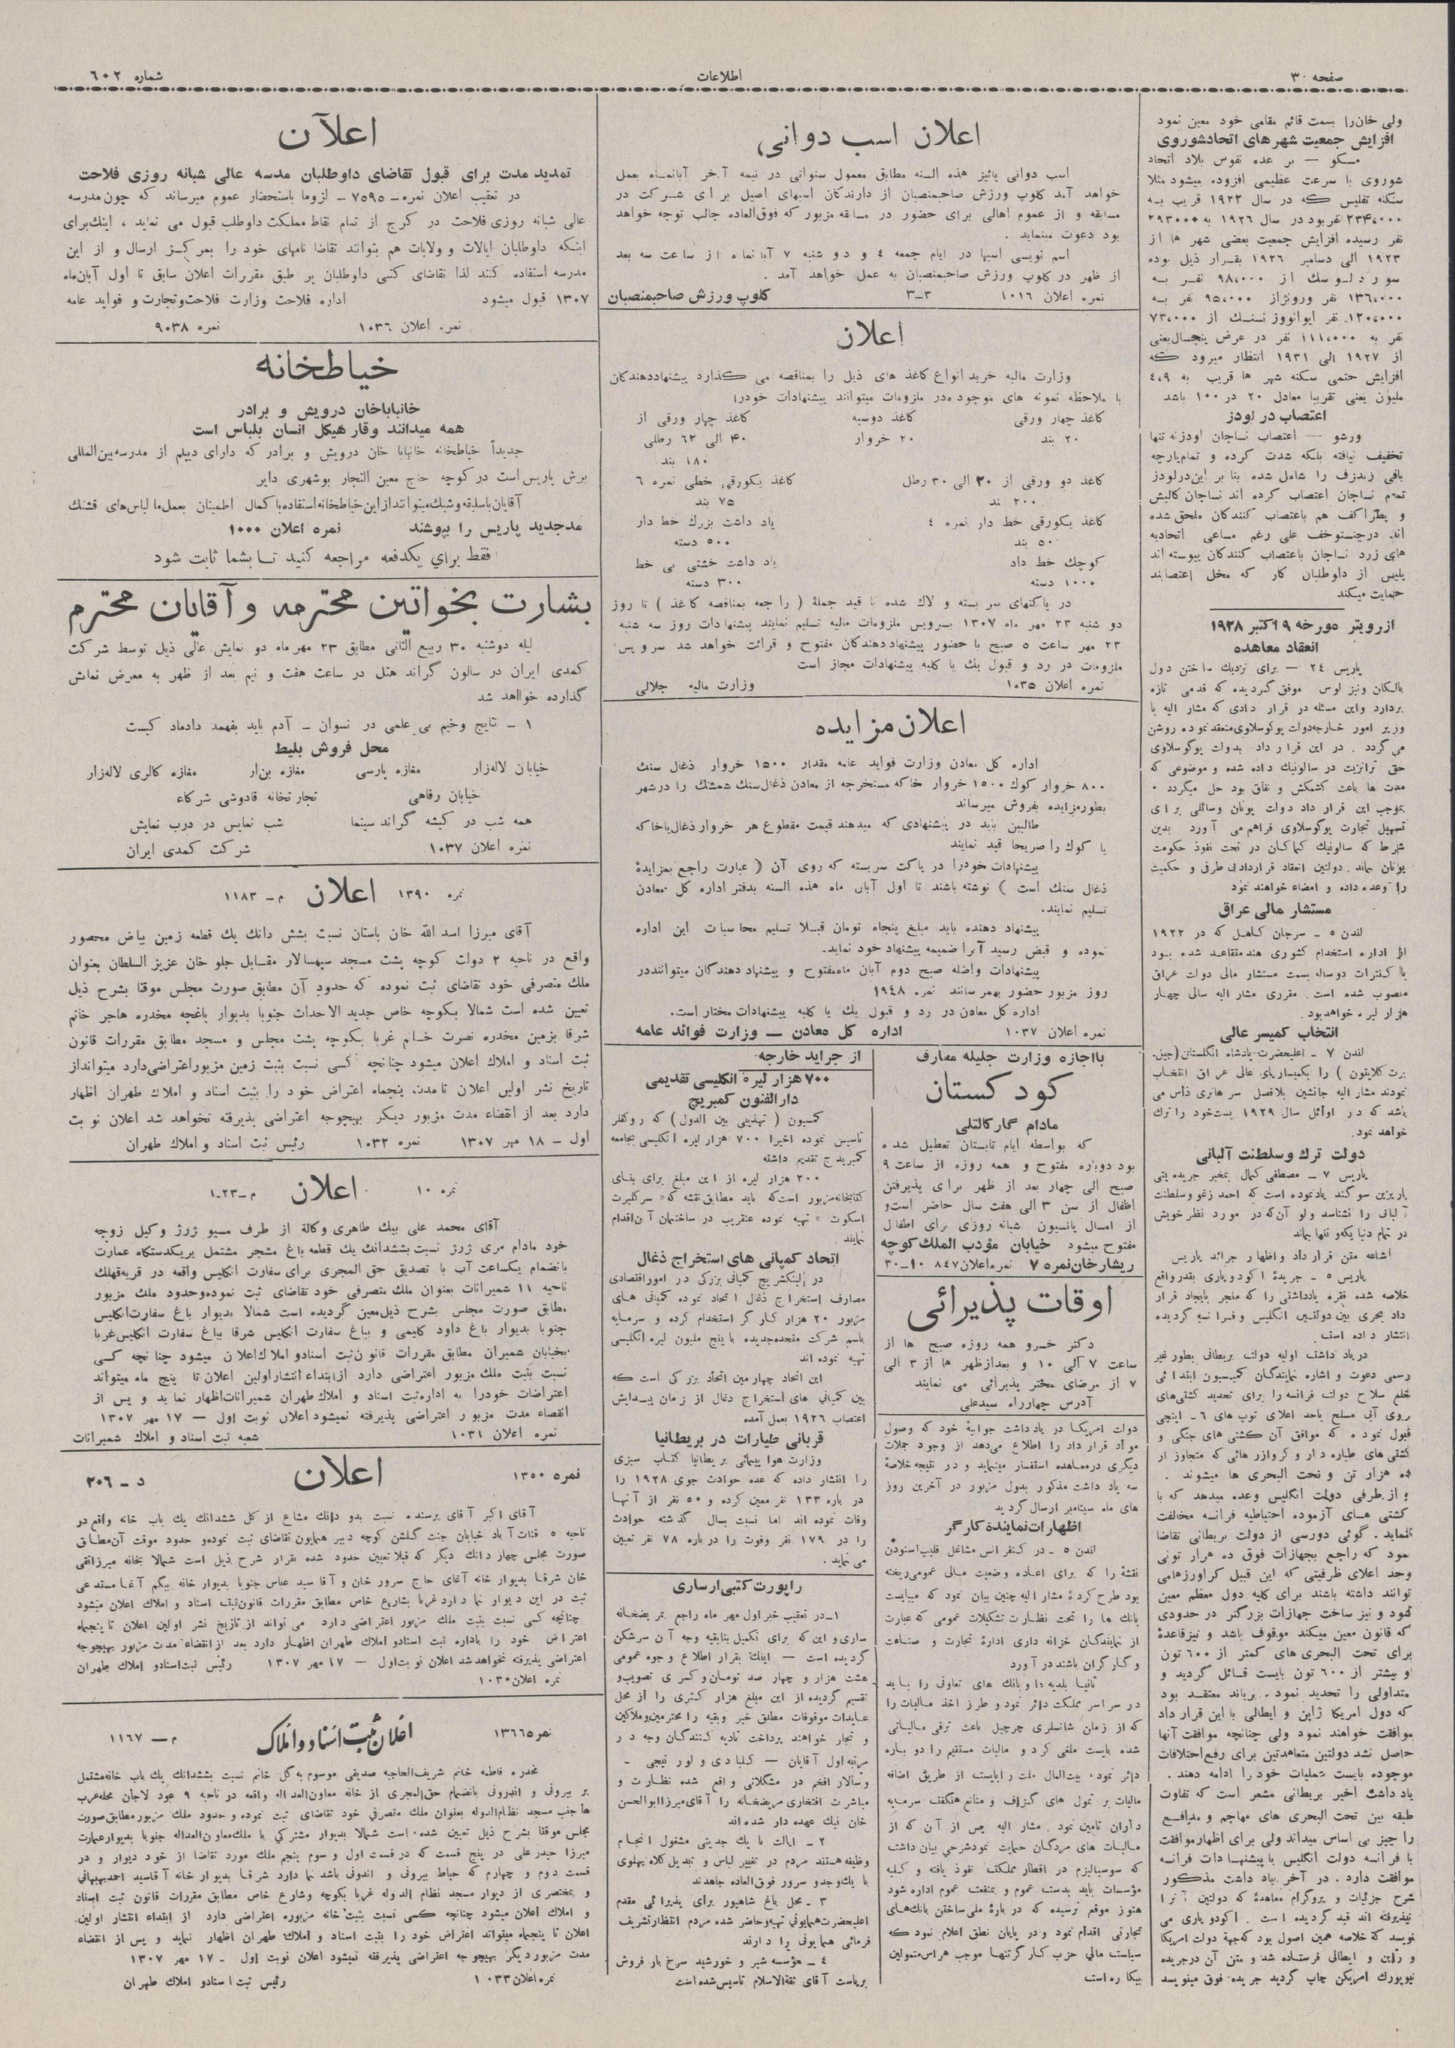 صفحه ۳۰
اطلاعات
شماره ۶۰۲
ولی خان‌را بسمت قائم مقامی خود معین نمود
افزایش جمعیت شهرهای اتحادشوروی
مسکو — بر عده نفوس بلاد اتحاد
شوروی با سرعت عظیمی افزوده میشود مثلا
سکنه تفلیس که در سال ۱۹۲۲ قریب به
۲۳۴،۰۰۰ نفربود در سال ۱۹۲۶ به ۲۹۳۰۰۰
نفر رسیده افزایش جمعیت بعضی شهر ها از
۱۹۲۳ الی دسامبر ۱۹۲۶ بقرار ذیل بوده
از ۹۸،۰۰۰ نفر به
۱۳۶،۰۰۰ نفر ورونژاز ۹۵،۰۰۰ نفر به
۱۲۰،۰۰۰ نفر ایوانووز نسنك از ۷۳،۰۰۰
نفر به ۱۱۱،۰۰۰ نفر در عرض پنجسال‌یعنی
از ۱۹۲۷ الی ۱۹۳۱ انتظار میرود که
افزایش حتمی سکنه شهر ها قریب به ۴،۹
ملیون یعنی تقریبا معادل ۲۰ در ۱۰۰ باشد
اعتصاب در لودز
ورشو — اعتصاب نساجان لودزنه تنها
تخفیف نیافته بلکه شدت کرده و تمام‌پارچه
بافی را شامل شده بنا بر این‌درلودز
تمام نساجان اعتصاب کرده اند نساجان کالیش
هم باعتصاب کنندگان ملحق شده
اند. علی رغم مساعی اتحادیه
های زرد نساجان باعتصاب کنندگان پیوسته اند
پلیس از داوطلبان کار که مخل اعتصابند
حمایت میکند
ازرویتر مورخه ۹ اکتبر ۱۹۲۸
انعقاد معاهده
پاریس ۲۴ — برای نزدیك ساختن دول
بالکان ونیز لوس موفق گردیده که قدمی تازه
بردارد واین مسئله در قرار دادی که مشار الیه با
وزیر امور خارجه‌دولت یوگوسلاوی‌منعقدنموده روشن
می گردد . در این قرار داد بدولت یوگوسلاوی
حق ترانزیت در سالونیك داده شده و موضوعی که
مدت ها باعث کشمکش و نفاق بود حل میگردد ۰
بموجب این قرار داد دولت یونان وسائلی برای
تسهیل تجارت یوگوسلاوی فراهم می آورد بدین
شرط که سالونیك کماکان در تحت نفوذ حکومت
یونان بماند. دولتین انعقاد قراردادبی طرفی و حکمیت
را وعده داده و امضاء خواهند نمود
مستشار مالی عراق
لندن ۵ - سرجان کامل که در ۱۹۲۲
از اداره استخدام کشوری هندمتقاعد شده بود
با کنترات دوساله بسمت مستشار مالی دولت عراق
منصوب شده است. مقرری مشار الیه سالی چهار
هزار لیره خواهدبود.
انتخاب کمیسر عالی
لندن ۷ - اعلیحضرت‌پادشاه انگلستان (جیل.
برت کلایتون) را بکمیساریای عالی عراق انتخاب
نمودند مشار الیه جانشین بلافصل سر هانری دابس می
باشد که در اوائل سال ۱۹۲۹ پست‌خود را ترك
خواهد نمود.
دولت ترك وسلطنت آلبانی
پاریس ۷ - مصطفی کمال بمخبر جریده‌پتی
پاریزین سوگند یادنموده است که احمد زغو وسلطنت
آلبانی را نشناسد ولو آن‌که در مورد نظر خویش
در تمام دنیا یکه‌و تنها بماند
اشاعه متن قرار داد واظهار جرائد پاریس
پاریس ۵ - جریدۀ اکودوپاری بقدرواقع
خلاصه شده فقره یادداشتی را که منجر بایجاد قرار
داد بحری بین‌دولتین انگلیس و فرانسه گردیده
انتشار داده است
دریادداشت اولیه دولت بریطانی بطور غیر
رسمی دعوت و اشاره نمایندگان کمیسیون ابتدائی
خلع سلاح دولت فرانسه‌را برای تحدید کشتی‌های
روی آبی مسلح باحد اعلای توپ های ۶- اینچی
قبول نموده که موافق آن کشتی های جنگی و
کشتی های طیاره دار و کروازر هائی که متجاوز از
ده هزار تن و تحت البحری ها میشوند .
و ازطرفی دولت انگلیس وعده میدهد که با
کشتی های آزموده احتیاطیه فرانسه مخالفت
ننماید. گوئی دورسی از دولت بریطانی تقاضا
نمود که راجع بجهازات فوق ده هزار تونی
وحد اعلای ظرفیتی که این قبیل کراوزرهامی
توانند داشته باشند برای کلیه دول معظم معین
نمود و نیز ساخت جهازات بزرگتر در حدودی
که قانون معین میکند موقوف باشد و نیزقاعدۀ
برای تحت البحری‌های کمتر از ۶۰۰ تون
و بیشتر از ۶۰۰ تون بایست قائل گردید و
متداولی را تحدید نمود. بریاند معتقد بود
که دول امریکا ژاپن و ایطالی با این قرار داد
موافقت خواهند نمود ولی چنانچه موافقت آنها
حاصل نشد دولتین متعاهدتین برای رفع‌اختلافات
موجوده بایست عملیات خود را ادامه دهند .
یاد داشت اخیر بریطانی مشعر است که تفاوت
طبقه بین تحت البحری های مهاجم و مدافع
را چیز بی اساس میداند ولی برای اظهارموافقت
با فرانسه دولت انگلیس با پیشنهادات فرانسه
موافقت دارد. در آخر یاد داشت مذکور
شرح جزئیات و پروگرام معاهدۀ که دولتین آنرا
پذیرفته اند قید گردیده است . اکودوپاری می
نویسد که خلاصه همین اصول بود که‌جهة دولت امریکا
و ژاپن و ایطالی فرستاده شد و متن آن درجریده
نیویورك امریکن چاپ گردید جریده فوق مینویسد
اعلان اسب دوانی
اسب دوانی پائیز هذه السنه مطابق معمول سنواتی در نیمه آخر آبانماه بعمل
خواهد آمد کلوپ ورزش صاحبمنصبان از دارندگان اسبهای اصیل برای شرکت در
مسابقه و از عموم اهالی برای حضور در مسابقه مزبور که فوق‌العاده جالب توجه خواهد
بود دعوت مینماید .
اسم نویسی اسبها در ایام جمعه ۴ و دو شنبه ۷ آبانماه از ساعت سه بعد
از ظهر در کلوپ ورزش صاحبمنصبان به عمل خواهد آمد .
نمره اعلان ۱۰۱۶ ۳-۳ کلوپ ورزش صاحبمنصبان
اعلان
وزارت مالیه خرید انواع کاغذ های ذیل را بمناقصه می گذارد پیشنهاددهندگان
با ملاحظه نمونه های موجوده‌در ملزومات میتوانند پیشنهادات خودرا
کاغذ چهار ورقی کاغذ دوسیه کاغذ چهار ورقی از
۲۰ بند ۲۰ خروار ۴۰ الی ۶۲ رطلی
۱۸۰ بند
کاغذ دو ورقی از ۲۰ الی ۳۰ رطل کاغذ یکورقی خطی نمره ۶
۲۰۰ بند ۷۵ بند
کاغذ یکورقی خط دار نمره ۴ یاد داشت بزرك خط دار
۵۰ بند ۵۰۰ دسته
کوچك خط داد یاد داشت خشتی بی خط
۱۰۰۰ دسته ۳۰۰ دسته
در پاکتهای سر بسته و لاك شده با قید جملۀ ( راجعه بمناقصه کاغذ ) تا روز
دو شنبه ۲۳ مهر ماه ۱۳۰۷ بسرویس ملزومات مالیه تسلیم نمایند پیشنهادات روز سه شنبه
۲۳ مهر ساعت ۵ صبح با حضور پیشنهاد دهندگان مفتوح و قرائت خواهد شد سرویس
ملزومات در رد و قبول یك یا کلیه پیشنهادات مجاز است
نمره اعلان ۱۰۳۵ وزارت مالیه جلالی
اعلان مزایده
اداره کل معادن وزارت فواید عامه مقدار ۱۵۰۰ خروار ذغال سنك
۸۰۰ خروار کوك ۱۵۰۰ خروار خاکه مستخرجه از معادن ذغال‌سنك شمشك را درشهر
بطورمزایده بفروش میرساند
طالبین باید در پیشنهادی که میدهند قیمت مقطوع هر خروار ذغال‌یاخاکه
یا کوك را صریحا قید نمایند
پیشنهادات خودرا در پاکت سربسته که روی آن ( عبارت راجع بمزایدۀ
ذغال سنك است ) نوشته باشند تا اول آبان ماه هذه السنه بدفتر اداره کل معادن
تسلیم نمایند.
پیشنهاد دهنده باید مبلغ پنجاه تومان قبلا تسلیم محاسبات این اداره
نموده و قبض رسید آنرا ضمیمه پیشنهاد خود نماید.
پیشنهادات واصله صبح دوم آبان ماه‌مفتوح و پیشنهاد دهندگان میتواننددر
روز مزبور حضور بهمرسانند نمره ۱۹۴۸
اداره کل معادن در رد و قبول یك یا کلیه پیشنهادات مختار است.
نمره اعلان ۱۰۳۷ اداره کل معادن — وزارت فوائد عامه
بااجازه وزارت جلیله معارف
کودکستان
مادام گارکالتلی
که بواسطه ایام تابستان تعطیل شده
بود دوباره مفتوح و همه روزه از ساعت ۹
صبح الی چهار بعد از ظهر برای پذیرفتن
اطفال از سن ۳ الی هفت سال حاضر است‌و
از امسال پانسیون شبانه روزی برای اطفال
مفتوح میشود خیابان مؤدب الملك کوچه
ریشارخان نمره ۷ نمره‌اعلان ۸۴۷ ۱۰-۳۰
اوقات پذیرائی
دکتر خسرو همه روزه صبح ها از
ساعت ۷ الی ۱۰ و بعدازظهر ها از ۳ الی
۷ از مرضای محترم پذیرائی می نمایند
آدرس چهارراه سیدعلی
دولت امریکا در یادداشت جوابیۀ خود که وصول
مواد قرار داد را اطلاع می‌دهد از وجود جملات
دیگری درمعاهده استفسار مینماید و در نتیجه خلاصۀ
سه یاد داشت مذکور بدول مزبور در آخرین روز
های ماه سپتامبر ارسال گردید
اظهارات نمایندۀ کارگر
لندن ۵ ـ در کنفرانس مشاغل فلیپ اسنودن
نقشۀ را که برای اعاده وضعیت مالی عمومی‌ریخته
بود طرح کرد مشار الیه چنین بیان نمود که میبایست
بانك ها را تحت نظارت تشکیلات عمومی که عبارت
از نمایندگان خزانه داری ادارۀ تجارت و صناعت
وکارگران باشند در آورد
ثانیا بلدیه ها و بانك های تعاونی را باید
در سراسر مملکت دائر نمود و طرز اخذ مالیات را
که‌از زمان شانسلری چرچیل باعث ترقی مالیاتی
شده بایست ملغی کرد و مالیات مستقیم را دو باره
دائر نمود، بیت‌المال ملت رابایست از طریق اضافه
مالیات بر تمول های گزاف و منافع هنگفت سرمایه
داران تامین نمود. مشار الیه پس از آن که از
مالیات های مردگان حمایت نمودشرحی بیان داشت
که سوسیالیزم در اقطار مملکت نفوذ یافته و کلیه
مؤسسات باید بدست عموم و بمنفعت عموم اداره شود
هنوز موقع نرسیده که در بارۀ ملی‌ساختن بانك‌های
تجارتی اقدام نمود و در پایان نطق اعلام نمود که
سیاست مالی حزب کارگر تنها موجب هراس‌متمولین
بیکاره است
از جراید خارجه
۷۰۰ هزار لیره انگلیسی تقدیمی
دارالفنون کمبریج
کمسیون ( تهذیبی بین الدول) که روکفلر
تاسیس نموده اخیرا ۷۰۰ هزار لیره انگلیسی بجامعه
کمبریدج تقدیم داشته
۲۰۰ هزار لیره از این مبلغ برای بنای
کتابخانه‌مزبور است که باید مطابق‌نقشه که« سرگلبرت
اسکوت » تهیه نموده عنقریب در ساختمان آن‌اقدام
نمایند
اتحاد کمپانی های استخراج ذغال
در کمپانی بزرکی در امور اقتصادی
مصارف استخراج ذغال اتحاد نموده کمپانی های
مزبور ۲۰ هزار کارگر استخدام کرده و سرمایه
باسم شرکت متحده‌جدیده با پنج ملیون لیره انگلیسی
تهیه نموده اند
این اتحاد چهارمین اتحاد بزرکی است که
بین کمپانی های استخراج دغال از زمان پیدایش
اعتصاب ۱۹۲۶ بعمل آمده
قربانی طیارات در بریطانیا
وزارت هوا پیمائی بریطانیا کتاب سبزی
را انتشار داده که عده حوادث جوی ۱۹۲۸ را
در باره ۱۳۳ نفر معین کرده و ۵۰ نفر از آنها
وفات نموده اند اما نسبت بسال گذشته حوادث
را در ۱۷۹ نفر وفوت را درباره ۷۸ نفر تعیین
می نماید.
راپورت کتبی ارساری
۱-در تعقیب خبر اول مهر ماه راجع بمریضخانه
ساری‌و این‌که برای تکمیل بنابقیه وجه آن سرشکن
گردیده است — اینك بقرار اطلاع وجوه عمومی
هشت هزار و چهار صد تومان‌و کسری تصویب و
تقسیم گردیده از این مبلغ هزار کثری را از محل
عایدات موقوفات مطلق خبر وبقیه را محترمین‌وملاکین
و تجار خواهند پرداخت تادیه کنندگان وجه در
مرتبه اول آقایان — کلبادی و لور تیجی -
وسالار افخم در مشکلاتی واقع شده نظارت و
مباشرت افتخاری مریضخانه را آقای میرزا ابوالحسن
خان نیك عهده دار شده اند
۲ - ایالت با یك جدیتی مشغول انجام
وظیفه‌هستند مردم در تغییر لباس و تبدیل کلاه پهلوی
با یك‌وجدو سرور فوق‌العاده جاهدند
۳ - محل باغ شاهپور برای پذیرائی مقدم
اعلیحضرت‌همایونی تهیه‌و حاضر شده مردم انتظارتشریف
فرمائی همایونی را دارند
۴ - مؤسسه شیر و خورشید سرخ بار فروش
بریاست آقای ثقةالاسلام تاسیس‌شده‌است
اعلان
تمدید مدت برای قبول تقاضای داوطلبان مدسه عالی شبانه روزی فلاحت
در تعقیب اعلان نمره- ۷۵۹۵- لزوما باستحضار عموم میرساند که چون‌مدرسه
عالی شبانه روزی فلاحت در کرج از تمام نقاط مملکت داوطلب قبول می نماید ، اینك‌برای
اینکه داوطلبان ایالات و ولایات هم بتوانند تقاضا نامهای خود را بمرکز ارسال و از این
مدرسه استفاده کنند لذا تقاضای کتبی داوطلبان بر طبق مقررات اعلان سابق تا اول آبان‌ماه
۱۳۰۷ قبول میشود اداره فلاحت وزارت فلاحت‌وتجارت و فواید عامه
نمره اعلان ۱۰۳۶ نمره ۹۰۳۸
خیاطخانه
خانباباخان درویش و برادر
همه میدانند وقار هیکل انسان بلباس است
جدیداً خیاطخانه خانبابا خان درویش و برادر که دارای دیپلم از مدرسه‌بین‌المللی
برش پاریس است در کوچه حاج معین التجار بوشهری دایر
آقایان باسلیقه‌وشیك‌میتوانندازاین‌خیاطخانه‌استفاده‌باکمال اطمینان بعمل‌ما لباس‌های قشنك
مدجدید پاریس را بپوشند نمره اعلان ۱۰۰۰
فقط برای یکدفعه مراجعه کنید تا بشما ثابت شود
بشارت بخواتین محترمه و آقایان محترم
لیله دوشنبه ۳۰ ربیع الثانی مطابق ۲۳ مهرماه دو نمایش عالی ذیل توسط شرکت
کمدی ایران در سالون گراند هتل در ساعت هفت و نیم بعد از ظهر به معرض نمایش
گذارده خواهد شد
۱ - نتایج وخیم بی علمی در نسوان - آدم باید بفهمد دادماد کیست
محل فروش بلیط
خیابان لاله‌زار مغازه پارسی مغازه بن‌ار مغازه کالری لاله‌زار
خیابان رفاهی تجارتخانه قادوشی شرکاء
همه شب در کیشه گراند سینما شب نمایش در درب نمایش
نمره اعلان ۱۰۳۷ شرکت کمدی ایران
نمره ۱۳۹۰ اعلان م- ۱۱۸۳
آقای میرزا اسد الله خان باستان نسبت بشش دانك یك قطعه زمین بیاض محصور
واقع در ناحیه ۲ دولت کوچه پشت مسجد سپهسالار مقابل جلو خان عزیز السلطان بعنوان
ملك متصرفی خود تقاضای ثبت نموده که حدود آن مطابق صورت مجلس موقتا بشرح ذیل
تعیین شده است شمالا بکوچه خاص جدید الاحداث جنوبا بدیوار باغچه مخدره هاجر خانم
شرقا بزمین مخدره نصرت خانم غربا بکوچه پشت مجلس و مسجد مطابق مقررات قانون
ثبت اسناد و املاك اعلان میشود چنانچه کسی نسبت بثبت زمین مزبوراعتراضی‌دارد میتوانداز
تاریخ نشر اولین اعلان تا مدت پنجماه اعتراض خود را بثبت اسناد و املاك طهران اظهار
دارد بعد از انقضاء مدت مزبور دیکر بهیچوجه اعتراضی پذیرفته نخواهد شد اعلان نوبت
اول - ۱۸ مهر ۱۳۰۷ نمره ۱۰۳۲ رئیس ثبت اسناد و املاك طهران
نمره ۱۰ اعلان م-۲۳-۱
آقای محمد علی بیك طاهری وکالة از طرف مسیو ژرژ وکیل زوجه
خود مادام مری ژرژ نسبت بششدانك یك قطعه باغ مشجر مشتمل بریکدستکاه عمارت
بانضمام یکساعت آب با تصدیق حق المجری برای سفارت انکلیس واقعه در قریه‌قلهك
ناحیه ۱۱ شمیرانات بعنوان ملك متصرفی خود تقاضای ثبت نموده‌وحدود ملك مزبور
مطابق صورت مجلس بشرح ذیل‌معین گردیده است شمالا بدیوار باغ سفارت‌انکلیس
جنوبا بدیوار باغ داود کلیمی و بباغ سفارت انکلیس شرقا بباغ سفارت انکلیس‌غربا
بخیابان شمیران مطابق مقررات قانون‌ثبت اسنادو املاك‌اعلان میشود چنانچه کسی
نسبت بثبت ملك مزبور اعتراضی دارد ازابتداء انتشاراولین اعلان تا پنج ماه میتواند
اعتراضات خودرا به اداره‌ثبت اسناد و املاك‌طهران شمیرانات‌اظهار نماید و پس از
انقضاء مدت مزبور اعتراضی پذیرفته نمیشود اعلان نوبت اول — ۱۷ مهر ۱۳۰۷
نمره اعلان ۱۰۳۱ شعبه ثبت اسناد و املاك شمیرانات
نمره ۱۳۰۰ اعلان د- ۳۰۶
آقای اکبر آقای برسنده نسبت بدو دانك مشاع از کل ششدانك یك باب خانه واقع در
ناحیه ۵ قنات آباد خیابان جنت گلشن کوچه دبیر همایون تقاضای ثبت نموده‌و حدود موقت آن‌مطابق
صورت مجلس چهاردانك دیگر که قبلا تعیین حدود شده بقرار شرح ذیل است شمالا بخانه میرزاتقی
خان شرقا بدیوار خانه آغای حاج سرور خان و آقا سید عباس جنوبا بدیوار خانه بیگم آغا مستدعی
ثبت در این دیوار بنا دارد غربا بشارع خاص مطابق مقررات قانون‌ثبت اسناد و املاك اعلان میشود
چنانچه کسی نسبت بثبت ملك مزبور اعتراضی دارد می تواند از تاریخ نشر اولین اعلان تا پنجماه
اعتراض خود را باداره ثبت اسنادو املاك طهران اظهار دارد بعد ازانقضاء مدت مزبور بهیچوجه
اعتراضی پذیرفته نخواهدشد اعلان نوبت‌اول — ۱۷ مهر ۱۳۰۷ رئیس ثبت‌اسنادو املاك طهران
نمره اعلان۱۰۳۰
نمره ۱۳۶۶۵ اعلان ثبت اسناد و املاك م— ۱۱۶۷
مخدره فاطمه خانم شریف‌الحاجیه صدیقی موسوم به‌گل خانم نسبت بششدانك یك باب خانه‌مشتمل
بر بیرونی و اندرونی بانضمام حق‌المجری از خانه معاون‌العداله واقعه در ناحیه ۹ عود لاجان محله‌عرب
ها جنب مسجد نظام‌الدوله بعنوان ملك متصرفی خود تقاضای ثبت نموده و حدود ملك مزبورمطابق‌صورت
مجلس موقتا بشرح ذیل تعیین شده‌است شمالا بدیوار مشترکی با ملك‌معاون‌العداله جنوبا بدیوارعمارت
میرزا حیدرعلی در پنج قسمت که در قسمت اول و سوم پنجم ملك مورد تقاضا از خود دیوار و در
قسمت دوم و چهارم که حیاط بیرونی و اندونی باشد بنا دارد شرقا بدیوار خانه آقاسید احمدبهبهانی
و بمختصری از دیوار مسجد نظام الدوله غربا بکوچه وشارع خاص مطابق مقررات قانون ثبت اسناد
و املاك اعلان میشود چنانچه کسی نسبت بثبت‌خانه مزبوره اعتراضی دارد از ابتداء انتشار اولین
اعلان تا پنجماه میتواند اعتراض خود را بثبت اسناد و املاك طهران اظهار نماید و پس از انقضاء
مدت مزبور دیگر بهیچوجه اعتراضی پذیرفته نمیشود اعلان نوبت اول - ۱۷ مهر ۱۳۰۷
نمره‌اعلان ۱۰۳۳ رئیس ثبت اسنادو املاك طهران